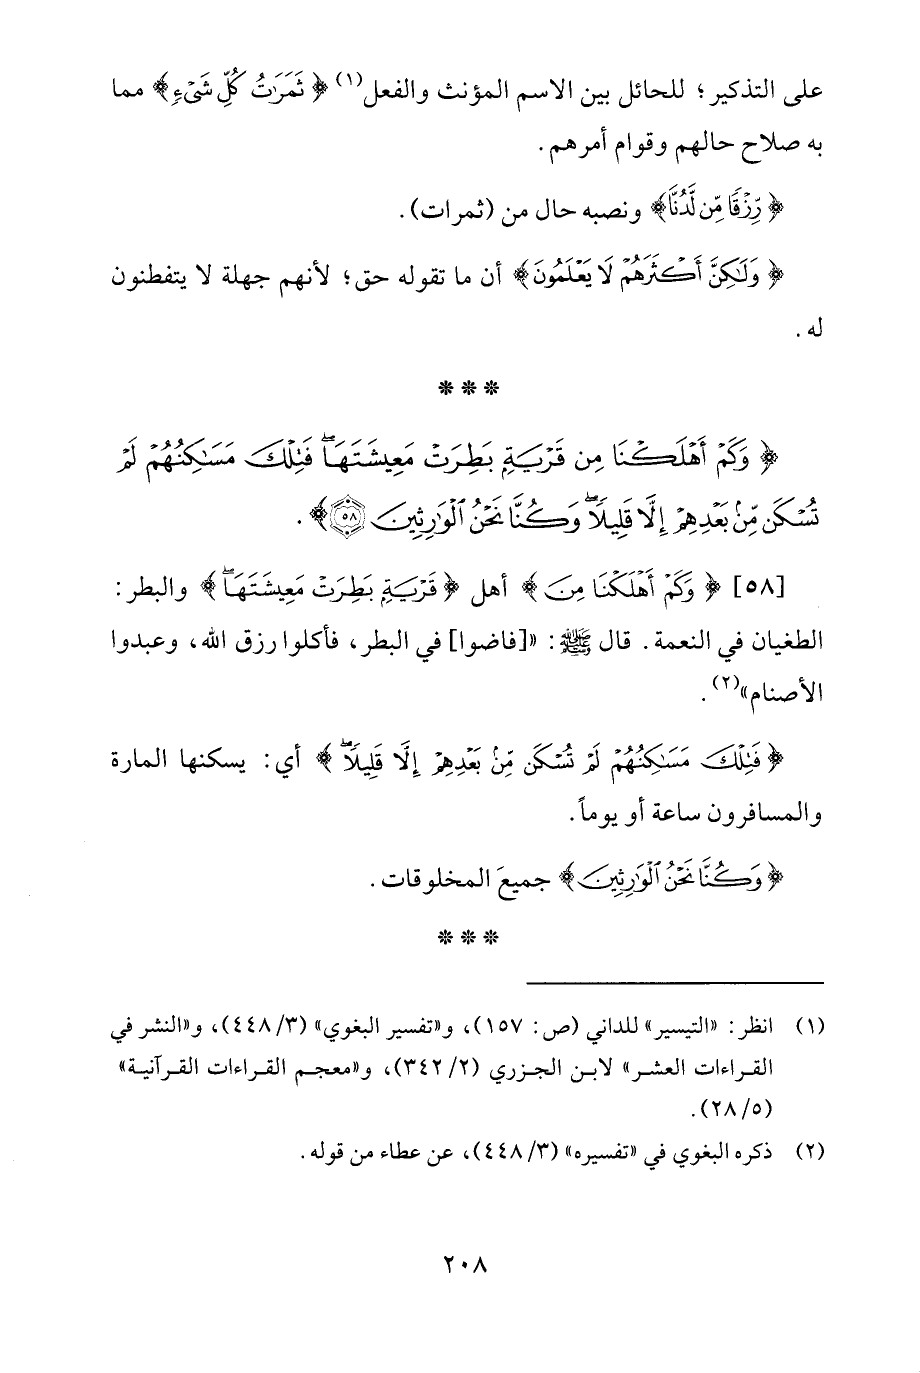 على التذكير؛ للحائل بين الاسم المؤنث والفعل(١) ﴿ثَمَرَٰتُ كُلِّ شَىْءٍ﴾ مما
به صلاح حالهم وقوام أمرهم.
﴿رِّزْقًا مِّن لَّدُنَّا﴾ ونصبه حال من (ثمرات).
﴿وَلَٰكِنَّ أَكْثَرَهُمْ لَا يَعْلَمُونَ﴾ أن ما تقوله حق؛ لأنهم جهلة لا يتفطنون
له.
* * *
﴿وَكَمْ أَهْلَكْنَا مِن قَرْيَةٍۭ بَطِرَتْ مَعِيشَتَهَاۖ فَتِلْكَ مَسَٰكِنُهُمْ لَمْ
تُسْكَن مِّنۢ بَعْدِهِمْ إِلَّا قَلِيلًاۖ وَكُنَّا نَحْنُ ٱلْوَٰرِثِينَ ٥٨﴾.
[٥٨] ﴿وَكَمْ أَهْلَكْنَا مِن﴾ أهل ﴿قَرْيَةٍۭ بَطِرَتْ مَعِيشَتَهَاۖ﴾ والبطر:
الطغيان في النعمة. قال ﷺ: «[فاضوا] في البطر، فأكلوا رزق الله، وعبدوا
الأصنام»(٢).
﴿فَتِلْكَ مَسَٰكِنُهُمْ لَمْ تُسْكَن مِّنۢ بَعْدِهِمْ إِلَّا قَلِيلًاۖ﴾ أي: يسكنها المارة
والمسافرون ساعة أو يوماً.
﴿وَكُنَّا نَحْنُ ٱلْوَٰرِثِينَ﴾ جميعَ المخلوقات.
* * *
(١) انظر: «التيسير» للداني (ص: ١٥٧)، و«تفسير البغوي» (٣/ ٤٤٨)، و«النشر في
القراءات العشر» لابن الجزري (٢/ ٣٤٢)، و«معجم القراءات القرآنية»
(٥/ ٢٨).
(٢) ذكره البغوي في «تفسيره» (٣/ ٤٤٨)، عن عطاء من قوله.
٢٠٨